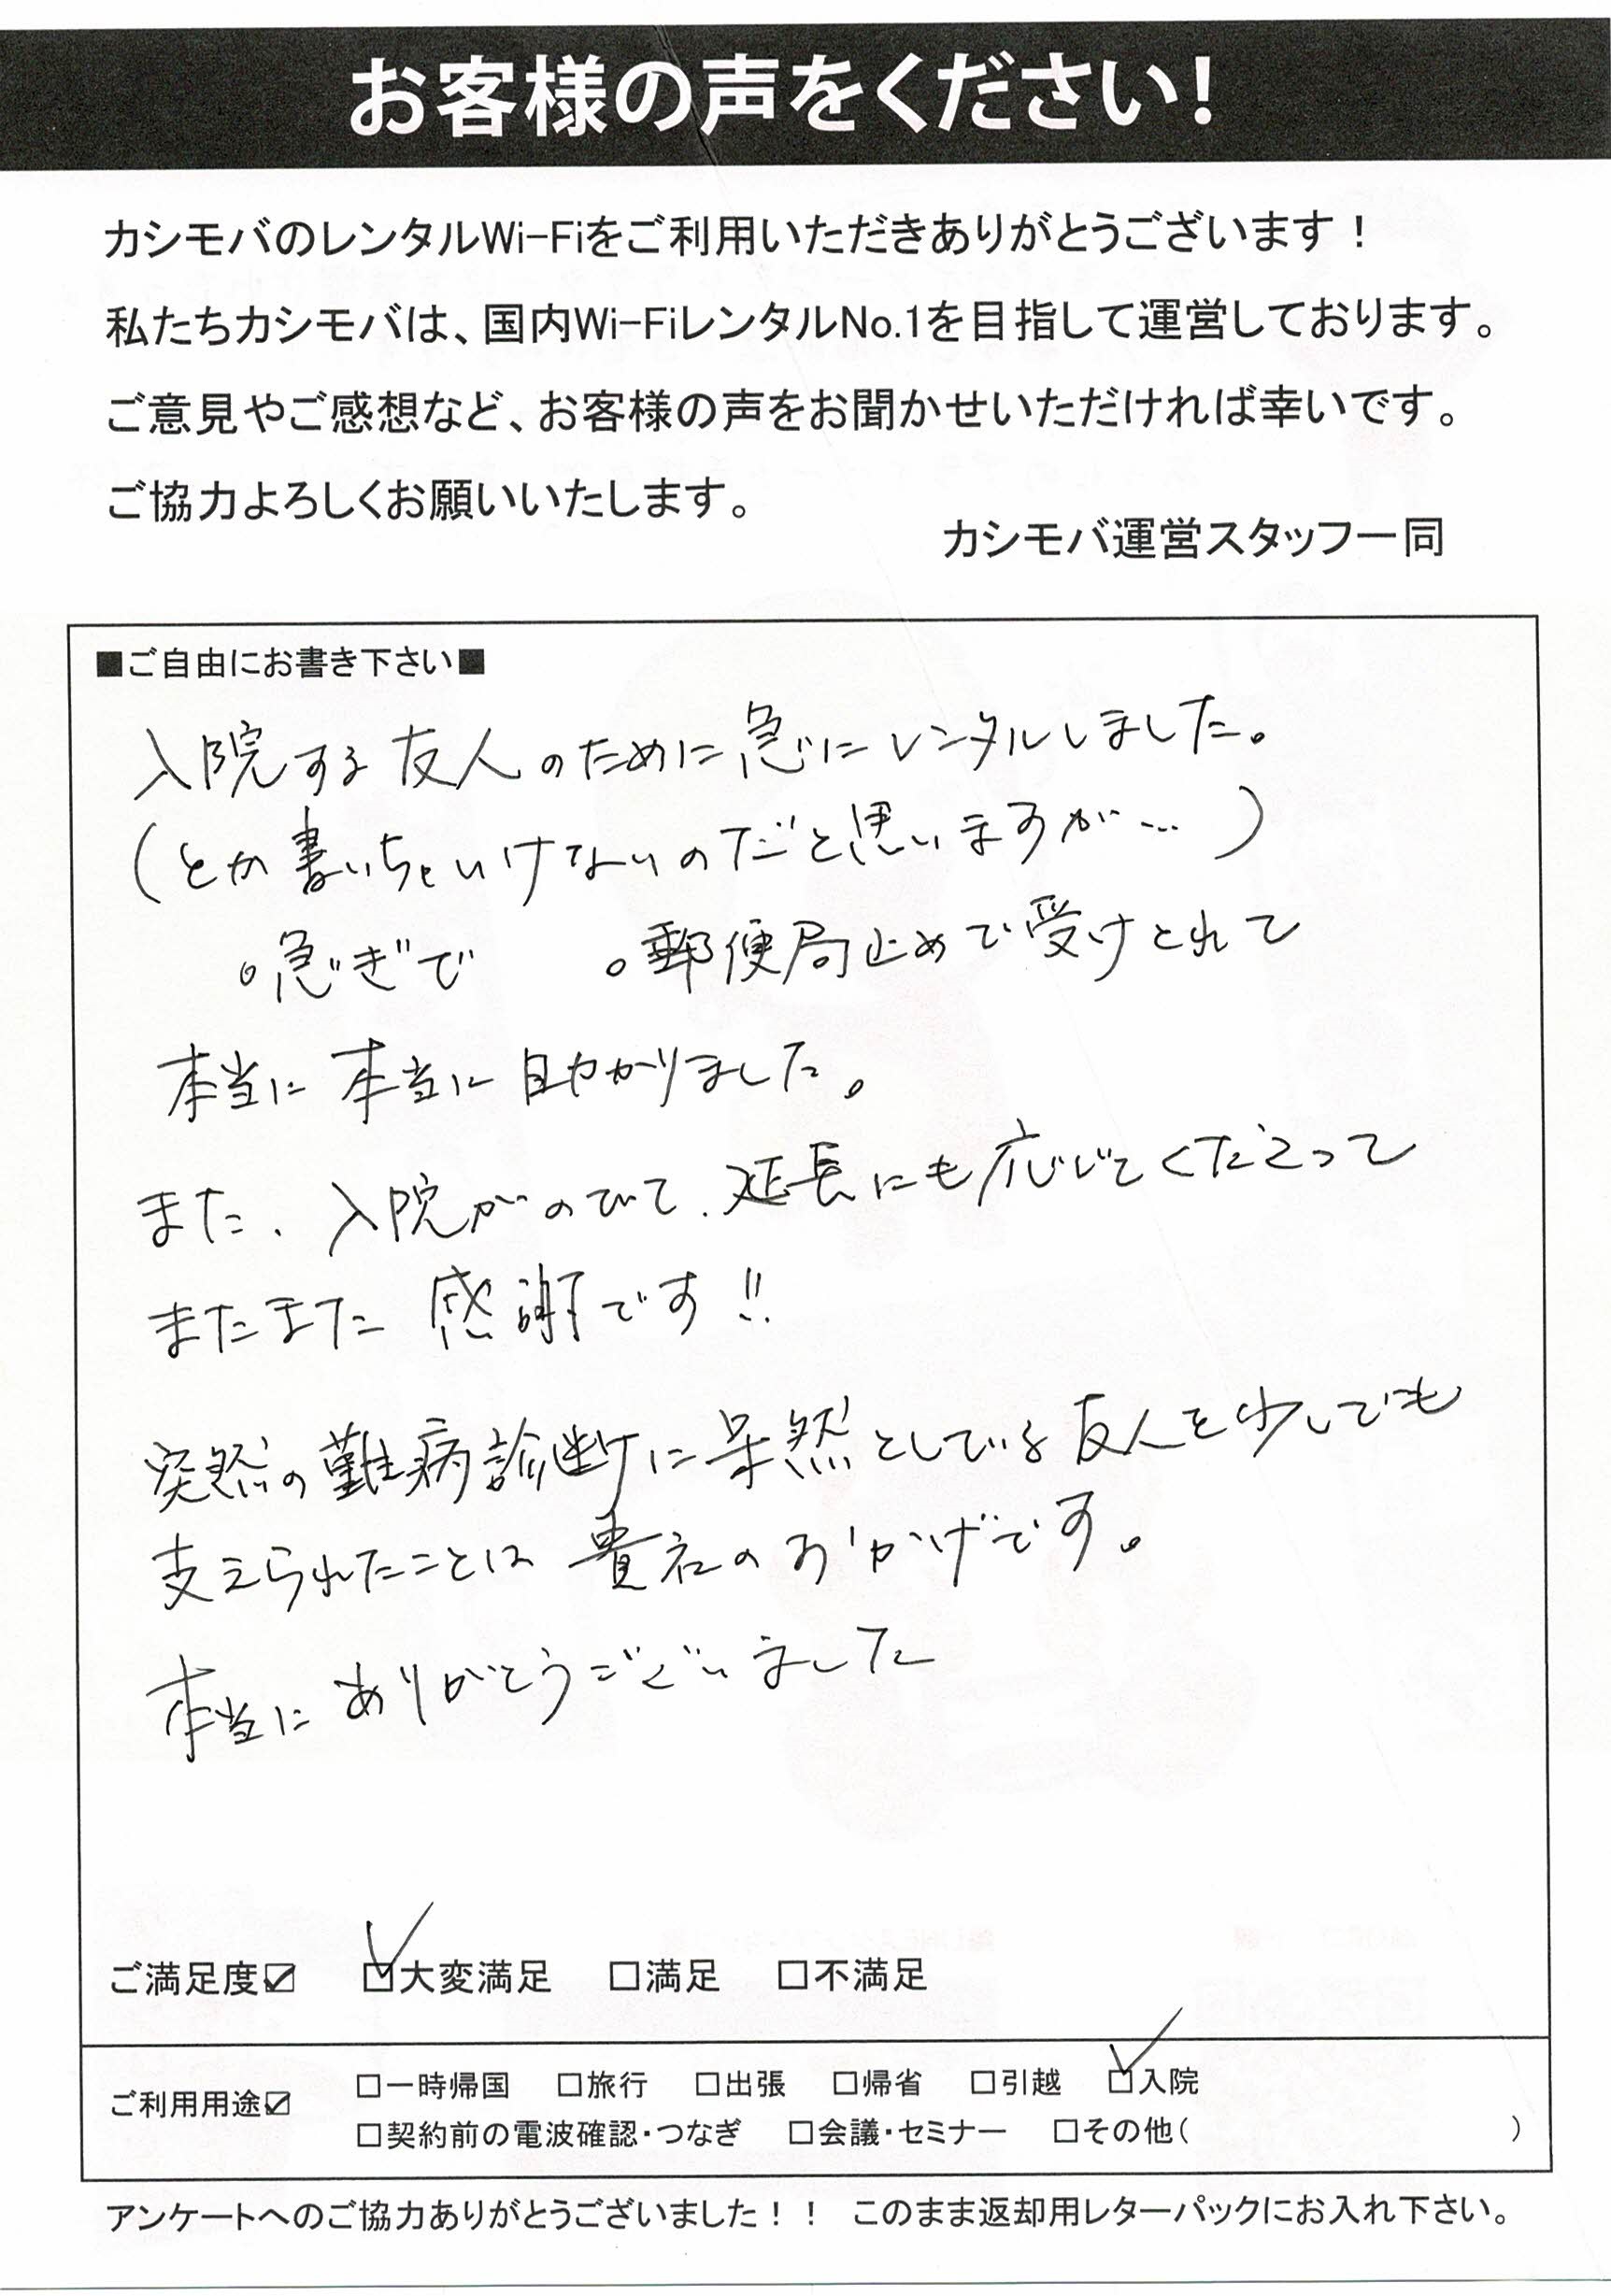 お客様の声をください!
カシモバのレンタルWi-Fiをご利用いただきありがとうございます！
私たちカシモバは、国内Wi-FiレンタルNo.1を目指して運営しております。
ご意見やご感想など、お客様の声をお聞かせいただければ幸いです。
ご協力よろしくお願いいたします。
カシモバ運営スタッフ一同
■ご自由にお書き下さい■
入院する友人のために急にレンタルしました。
(とか書いちゃいけないのだと思いますが…)
○急ぎで ○郵便局止めで受けとれて
本当に本当に助かりました。
また、入院がのびて、延長にも応じてくださって
またまた感謝です!!
突然の難病診断に呆然としている友人を少しでも
支えられたことは貴社のおかげです。
本当にありがとうございました
ご満足度☑ ☑大変満足 □満足 □不満足
ご利用用途☑ □一時帰国 □旅行 □出張 □帰省 □引越 ☑入院
□契約前の電波確認・つなぎ □会議・セミナー □その他( )
アンケートへのご協力ありがとうございました！！ このまま返却用レターパックにお入れ下さい。